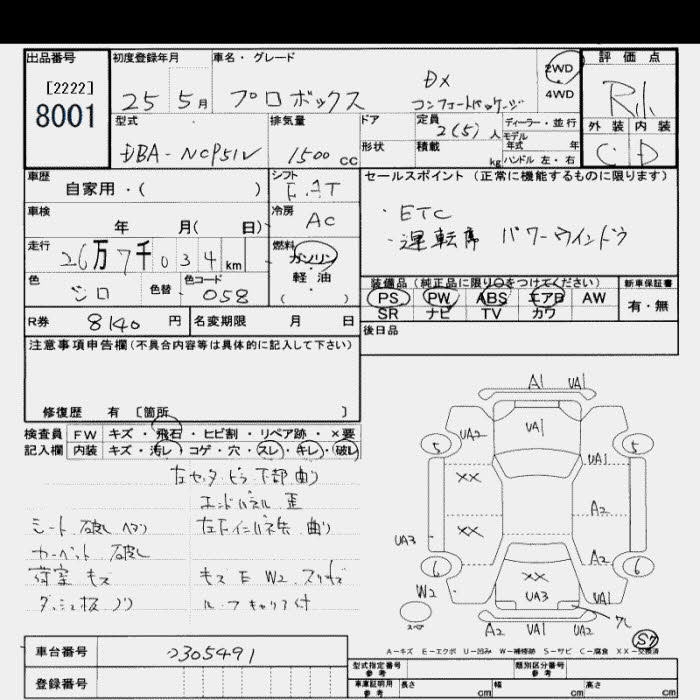 出品番号
[2222]
8001
初度登録年月
25 5月
車名・グレード
プロボックス
DX
コンフォートパッケージ
2WD
4WD
評価点
R1.
外装 内装
C D
型式
DBA-NCP51V
排気量
1500 cc
ドア
形状
定員
2(5)人
積載
kg
ディーラー・並行
モデル
年式 年
ハンドル 左・右
車歴
自家用・( )
シフト
F.AT
車検
年 月( 日)
冷房
AC
走行
26万7千034km
燃料
ガソリン
軽・油
( )
色
シロ
色替
色コード
058
R券 8140 円
名変期限 月 日
セールスポイント(正常に機能するものに限ります)
・ETC
・運転席 パワーウインドウ
装備品(純正品に限り○をつけてください)
PS PW ABS エアB AW
SR ナビ TV カワ
新車保証書
有・無
後日品
注意事項申告欄(不具合内容等は具体的に記入して下さい)
修復歴 有〔箇所 〕
検査員 FW キズ・飛石・ヒビ割・リペア跡・×要
記入欄 内装 キズ・汚レ・コゲ・穴・スレ・キレ・破レ
左センタピラ下部曲り
エンドパネル歪
シート破レ ヘタリ
カーペット破レ
荷室キズ
左Fインパネ先曲り
キズE W2 スリキズ
ルーフキャリア付
A1 UA1
UA2 UA1
5 5
UA1
XX
A2
XX
UA3
A2
6 6
XX
W2 UA3 UA1
スペア
A2 UA1 UA2
S7
A-キズ E-エクボ U-凹み W-補修跡 S-サビ C-腐食 XX-交換済
車台番号
2305491
登録番号
型式指定番号
参考
類別区分番号
参考
車庫証明用
参考
長さ cm
幅 cm
高さ cm